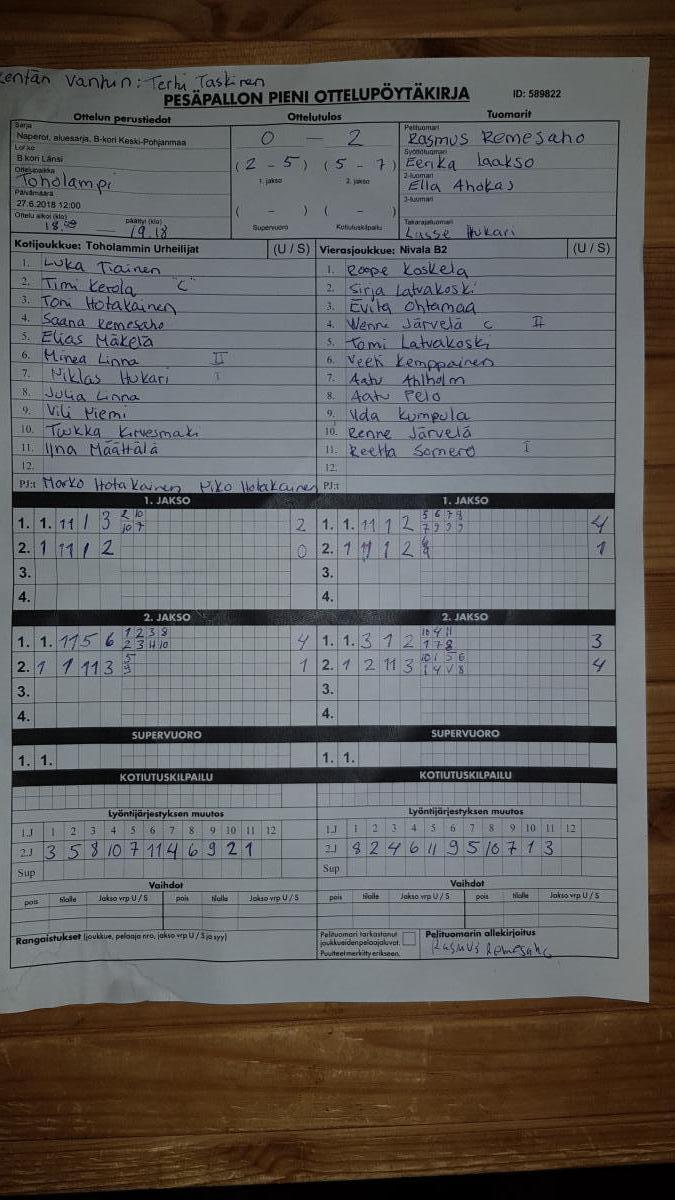 Kentän Vanhin: Terhi Taskinen
PESÄPALLON PIENI OTTELUPÖYTÄKIRJA ID: 589822
Ottelun perustiedot Ottelutulos Tuomarit
Sarja
Naperot, aluesarja, B-kori Keski-Pohjanmaa
Lohko
B kori Länsi
Ottelupaikka
Toholampi
Päivämäärä
27.6.2018 12:00
Ottelu alkoi (klo) päättyi (klo)
18.00 — 19.18
0 — 2
(2 - 5) (5 - 7)
1. jakso 2. jakso
( - ) ( - )
Supervuoro Kotiutuskilpailu
Pelituomari
Rasmus Remesaho
Syöttötuomari
Eerika Laakso
2-tuomari
Ella Ahokas
3-tuomari
Takarajatuomari
Lasse Hukari
Kotijoukkue: Toholammin Urheilijat (U / S)
1. Luka Tiainen
2. Timi Kerola "C"
3. Toni Hotakainen
4. Saana Remesaho
5. Elias Mäkelä
6. Minea Linna II
7. Niklas Hukari I
8. Julia Linna
9. Vili Niemi
10. Tuukka Kirvesmäki
11. Iina Määttälä
12.
PJ:t Marko Hotakainen Niko Hotakainen
Vierasjoukkue: Nivala B2 (U / S)
1. Roope Koskela
2. Sirja Latvakoski
3. Evita Ohtamaa
4. Wenne Järvelä C II
5. Tomi Latvakoski
6. Veeti Kemppainen
7. Aatu Ahlholm
8. Aatu Pelo
9. Iida Kumpula
10. Renne Järvelä
11. Reetta Somero I
12.
PJ:t
1. JAKSO 1. JAKSO
1. 1. 11 1 3 2 10 10 7 2 1. 1. 11 1 2 5 6 7 8 7 9 9 9 4
2. 1 11 1 2 0 2. 1 11 1 2 1
3. 3.
4. 4.
2. JAKSO 2. JAKSO
1. 1. 11 5 6 1 2 3 8 2 3 11 10 4 1. 1. 3 1 2 10 4 11 1 7 8 3
2. 1 1 11 3 5 9 1 2. 1 2 11 3 4
3. 3.
4. 4.
SUPERVUORO SUPERVUORO
1. 1. 1. 1.
KOTIUTUSKILPAILU KOTIUTUSKILPAILU
Lyöntijärjestyksen muutos Lyöntijärjestyksen muutos
1.J 1 2 3 4 5 6 7 8 9 10 11 12 1.J 1 2 3 4 5 6 7 8 9 10 11 12
2.J 3 5 8 10 7 11 4 6 9 2 1 2.J 8 2 4 6 11 9 5 10 7 1 3
Sup Sup
Vaihdot Vaihdot
pois tilalle Jakso vrp U / S pois tilalle Jakso vrp U / S pois tilalle Jakso vrp U / S pois tilalle Jakso vrp U / S
Rangaistukset (joukkue, pelaaja nro, jakso vrp U / S ja syy)
Pelituomari tarkastanut
joukkueiden pelaajaluvat.
Puutteet merkitty erikseen.
Pelituomarin allekirjoitus
Rasmus Remesaho